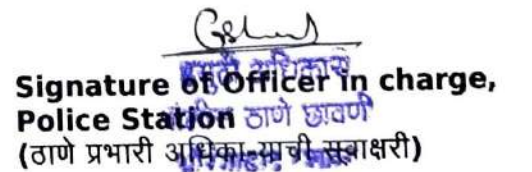 Signature of Officer in charge,
Police Station ठाणे छावणी
(ठाणे प्रभारी अधिका-याची स्वाक्षरी)